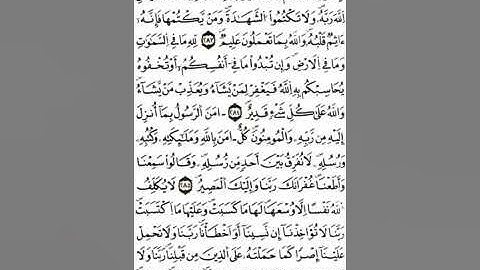 اللَّهَ رَبَّهُ وَلَا تَكْتُمُوا الشَّهَٰدَةَ وَمَنْ يَكْتُمْهَا فَإِنَّهُ
ءَاثِمٌ قَلْبُهُ وَاللَّهُ بِمَا تَعْمَلُونَ عَلِيمٌ ٢٨٢ لِلَّهِ مَا فِي السَّمَٰوَٰتِ
وَمَا فِي الْأَرْضِ وَإِن تُبْدُوا مَا فِي أَنفُسِكُمْ أَوْ تُخْفُوهُ
يُحَاسِبْكُم بِهِ اللَّهُ فَيَغْفِرْ لِمَنْ يَشَاءُ وَيُعَذِّبْ مَنْ يَشَاءُ
وَاللَّهُ عَلَىٰ كُلِّ شَيْءٍ قَدِيرٌ ءَامَنَ الرَّسُولُ بِمَا أُنزِلَ
إِلَيْهِ مِن رَّبِّهِ وَالْمُومِنُونَ كُلٌّ ءَامَنَ بِاللَّهِ وَمَلَٰئِكَتِهِ وَكُتُبِهِ
وَرُسُلِهِ لَا نُفَرِّقُ بَيْنَ أَحَدٍ مِّن رُّسُلِهِ وَقَالُوا سَمِعْنَا
وَأَطَعْنَا غُفْرَانَكَ رَبَّنَا وَإِلَيْكَ الْمَصِيرُ ٢٨٤ لَا يُكَلِّفُ
اللَّهُ نَفْسًا إِلَّا وُسْعَهَا لَهَا مَا كَسَبَتْ وَعَلَيْهَا مَا اكْتَسَبَتْ
رَبَّنَا لَا تُوَاخِذْنَا إِن نَّسِينَا أَوْ أَخْطَأْنَا رَبَّنَا وَلَا تَحْمِلْ
عَلَيْنَا إِصْرًا كَمَا حَمَلْتَهُ عَلَى الَّذِينَ مِن قَبْلِنَا رَبَّنَا وَلَا